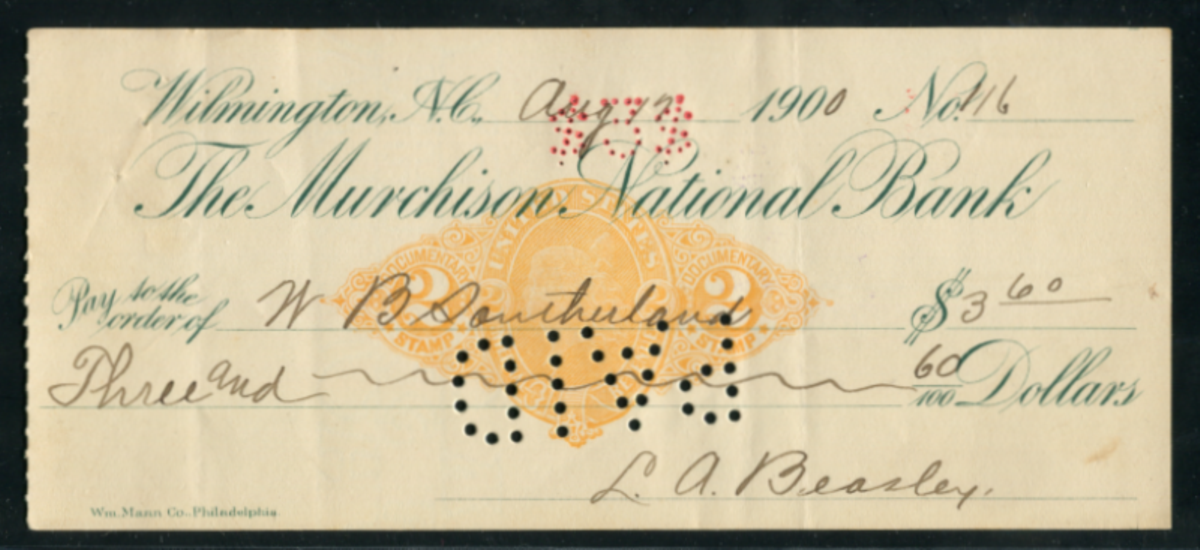 Wilmington, N.C., Aug 1900 No. 116
The Murchison National Bank
UNITED STATES
DOCUMENTARY DOCUMENTARY
2 2
STAMP STAMP
Pay to the order of W B Southerland $3 60
Three and 60/100 Dollars
L. A. Beasley.
Wm. Mann Co. Philadelphia